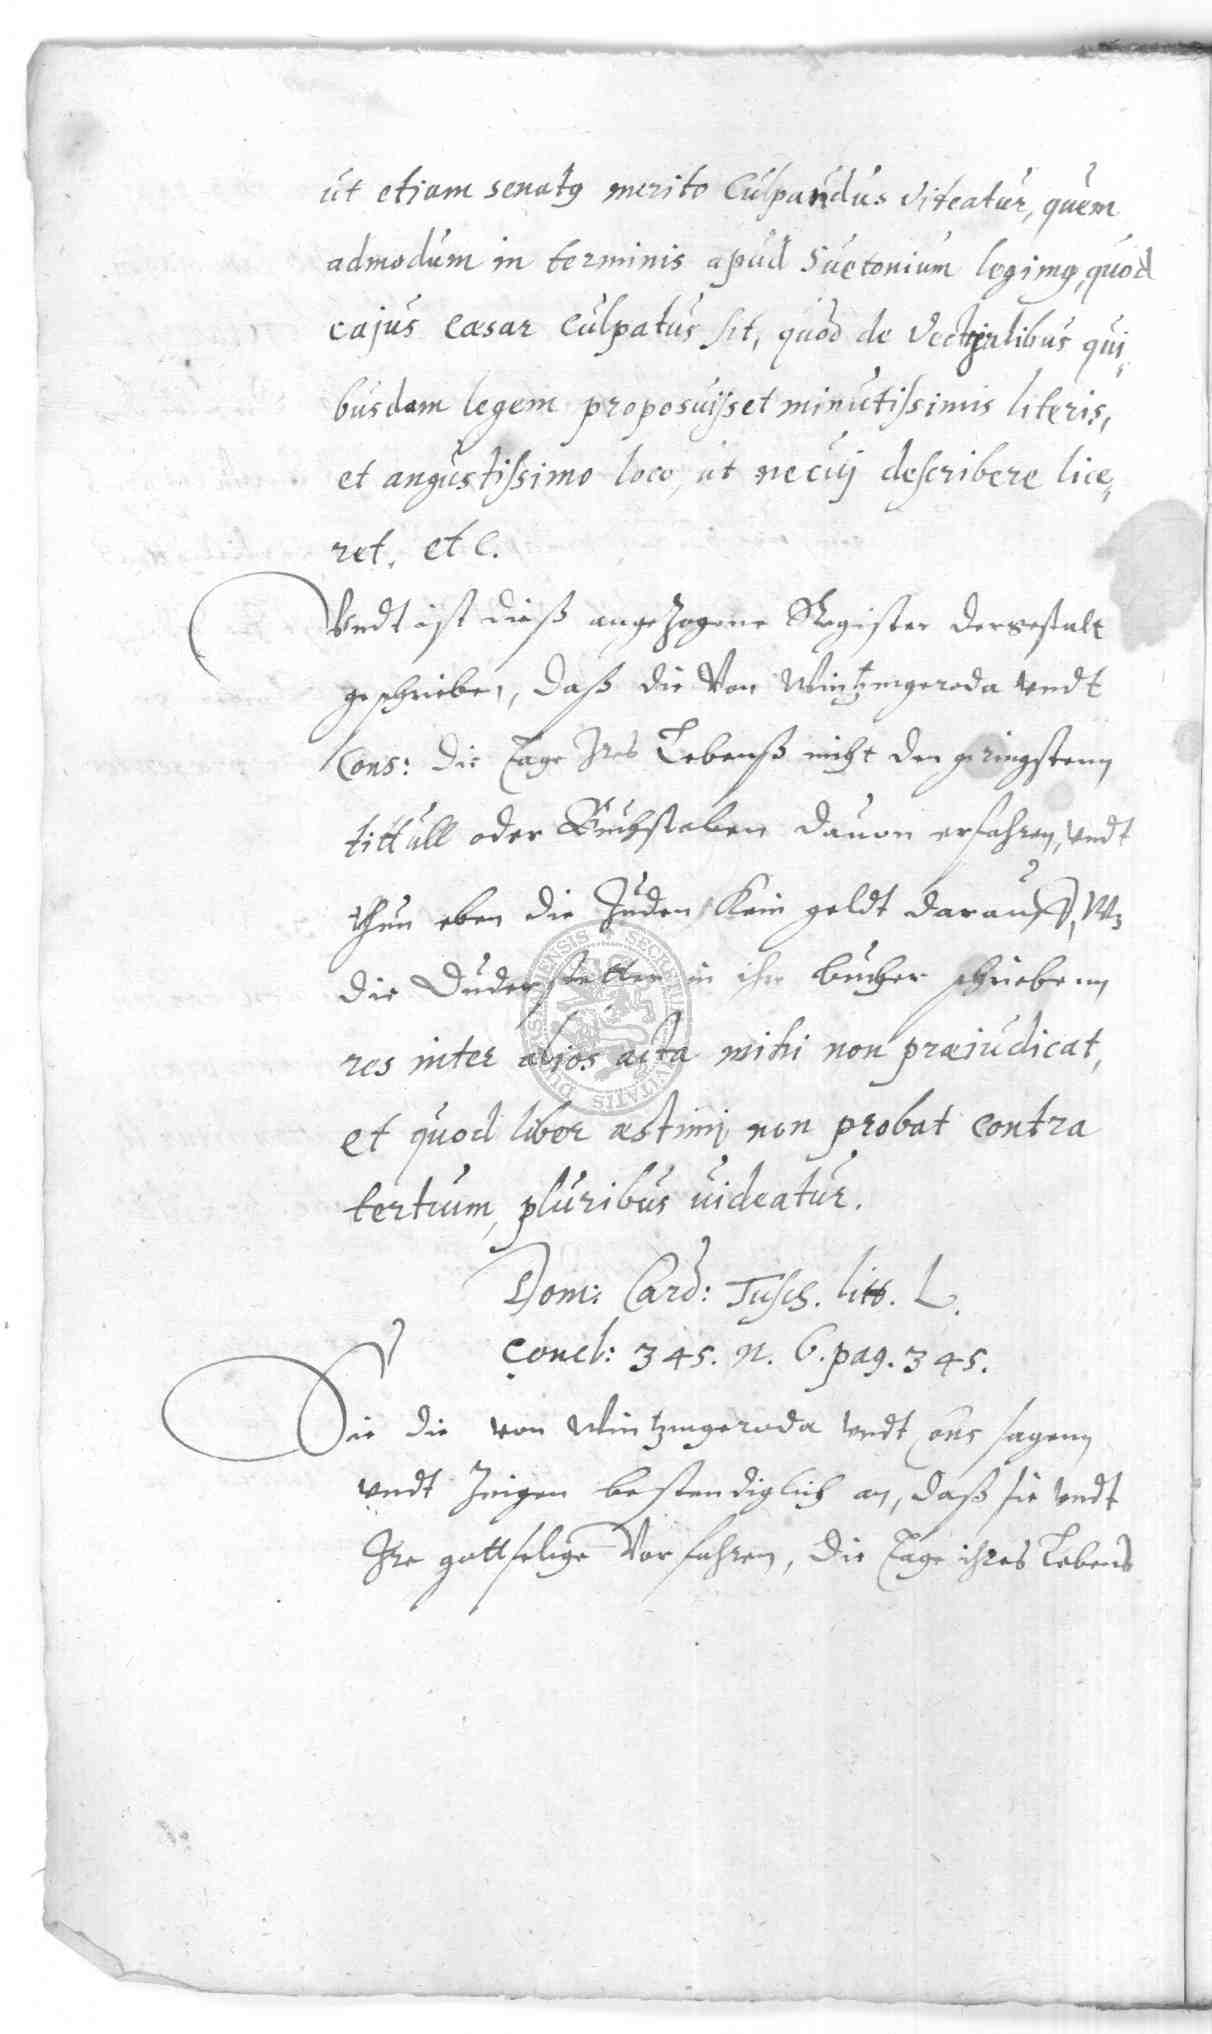 ut etiam senatus merito culpandus viteatur, quem
admodum in terminis apud Suetonium legimus, quod
cajus Cæsar culpatus sit, quod de vectigalibus qui„
busdam legem proposuisset minutissimis literis,
et angustissimo loco, ut ne cuj describere lice„
ret. etc.
Vndt ist dieß angezogene Register dergestalt
geschrieben, daß die Von Wintzingeroda vndt
Cons: die Tage Ires Lebenß nicht den geringstenn
tittull oder Buchstaben dauon erfahren, vndt
thun eben die Juden Kein geldt darauff, Wz
die Duderstetter in ihr bucher schriebenn
res inter alios acta mihi non præiudicat,
et quod liber æstimi non probat contra
tertium, pluribus uideatur.
Dom: Card: Tusch. litt. L.
Concl: 345. n. 6. pag. 345.
Sie die von Wintzingeroda vndt Cons sagenn
vndt Zeigen bestendiglich an, daß sie vndt
Ire gottselige Vorfahren, die Tage ihres Lebens